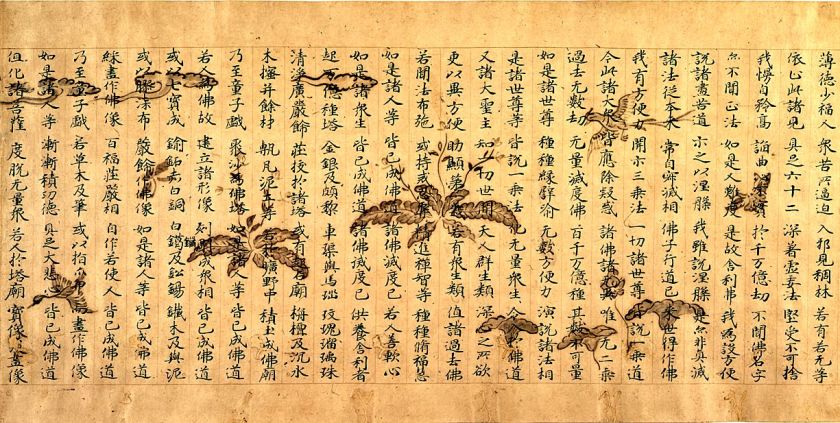 薄德少福人 衆苦所逼迫 入邪見稠林 若有若無等
依止此諸見 具足六十二 深著虛妄法 堅受不可捨
我慢自矜高 諂曲心不實 於千萬億劫 不聞佛名字
亦不聞正法 如是人難度 是故舍利弗 我為設方便
說諸盡苦道 示之以涅槃 我雖說涅槃 是亦非真滅
諸法從本來 常自寂滅相 佛子行道已 來世得作佛
我有方便力 開示三乘法 一切諸世尊 皆說一乘道
今此諸大衆 皆應除疑惑 諸佛語無異 唯一无二乘
過去无數劫 无量滅度佛 百千万億種 其數不可量
如是諸世尊 種種緣譬喻 无數方便力 演說諸法相
是諸世尊等 皆說一乘法 化无量衆生 令入於佛道
又諸大聖主 知一切世間 天人群生類 深心之所欲
更以異方便 助顯第一義 若有衆生類 值諸過去佛
若聞法布施 或持戒忍辱 精進禪智等 種種脩福慧
如是諸人等 皆已成佛道 諸佛滅度已 若人善軟心
如是諸衆生 皆已成佛道 諸佛滅度已 供養舍利者
起万億種塔 金銀及頗黎 車璖與馬瑙 玫瑰瑠璃珠
清淨廣嚴飾 莊挍於諸塔 或有起石廟 栴檀及沉水
木櫁并餘材 塼瓦泥土等 若於曠野中 積土成佛廟
乃至童子戲 聚沙為佛塔 如是諸人等 皆已成佛道
若人為佛故 建立諸形像 刻雕成衆相 皆已成佛道
或以七寶成 鍮鉐赤白銅 白鑞及鉛錫 鐵木及與泥
或以膠漆布 嚴飾作佛像 如是諸人等 皆已成佛道
綵畫作佛像 百福莊嚴相 自作若使人 皆已成佛道
乃至童子戲 若草木及筆 或以指爪甲 而畫作佛像
如是諸人等 漸漸積功德 具足大悲心 皆已成佛道
但化諸菩薩 度脫无量衆 若人於塔廟 寶像及畫像